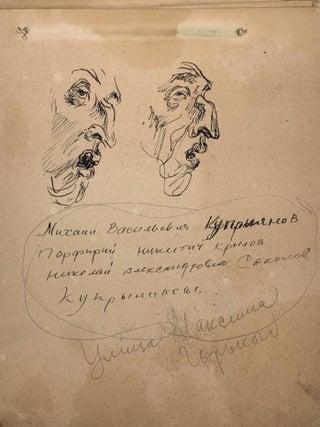 Михаил Васильевич Куприянов
Порфирий Никитич Крылов
Николай Александрович Соколов
Кукрыниксы.
Улица Максима
Горького